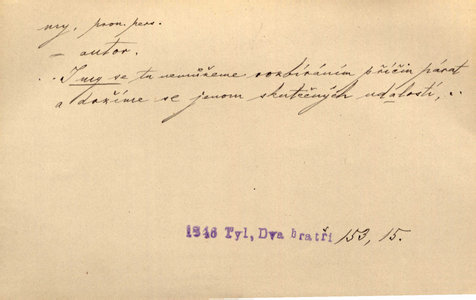 my, pron. pers.
– autor.
.. I my se tu nemůžeme rozbíráním příčin párat
a držíme se jenom skutečných událostí, ..
1846 Tyl, Dva bratři 153, 15.